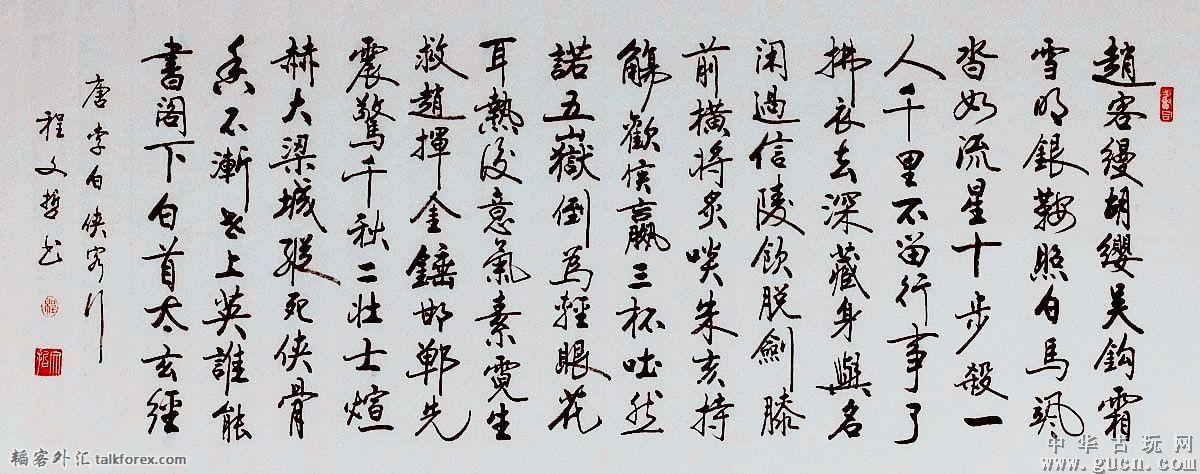 趙客縵胡纓吳鈎霜
雪明銀鞍照白馬颯
沓如流星十步殺一
人千里不留行事了
拂衣去深藏身與名
閑過信陵飲脱劍膝
前橫將炙啖朱亥持
觴勸侯嬴三杯吐然
諾五嶽倒為輕眼花
耳熱後意氣素霓生
救趙揮金錘邯鄲先
震驚千秋二壯士煊
赫大梁城縱死俠骨
香不慚世上英誰能
書閣下白首太玄經
唐李白俠客行
程文哲書
韬客外汇 talkforex.com
中华古玩网
www.gucn.com